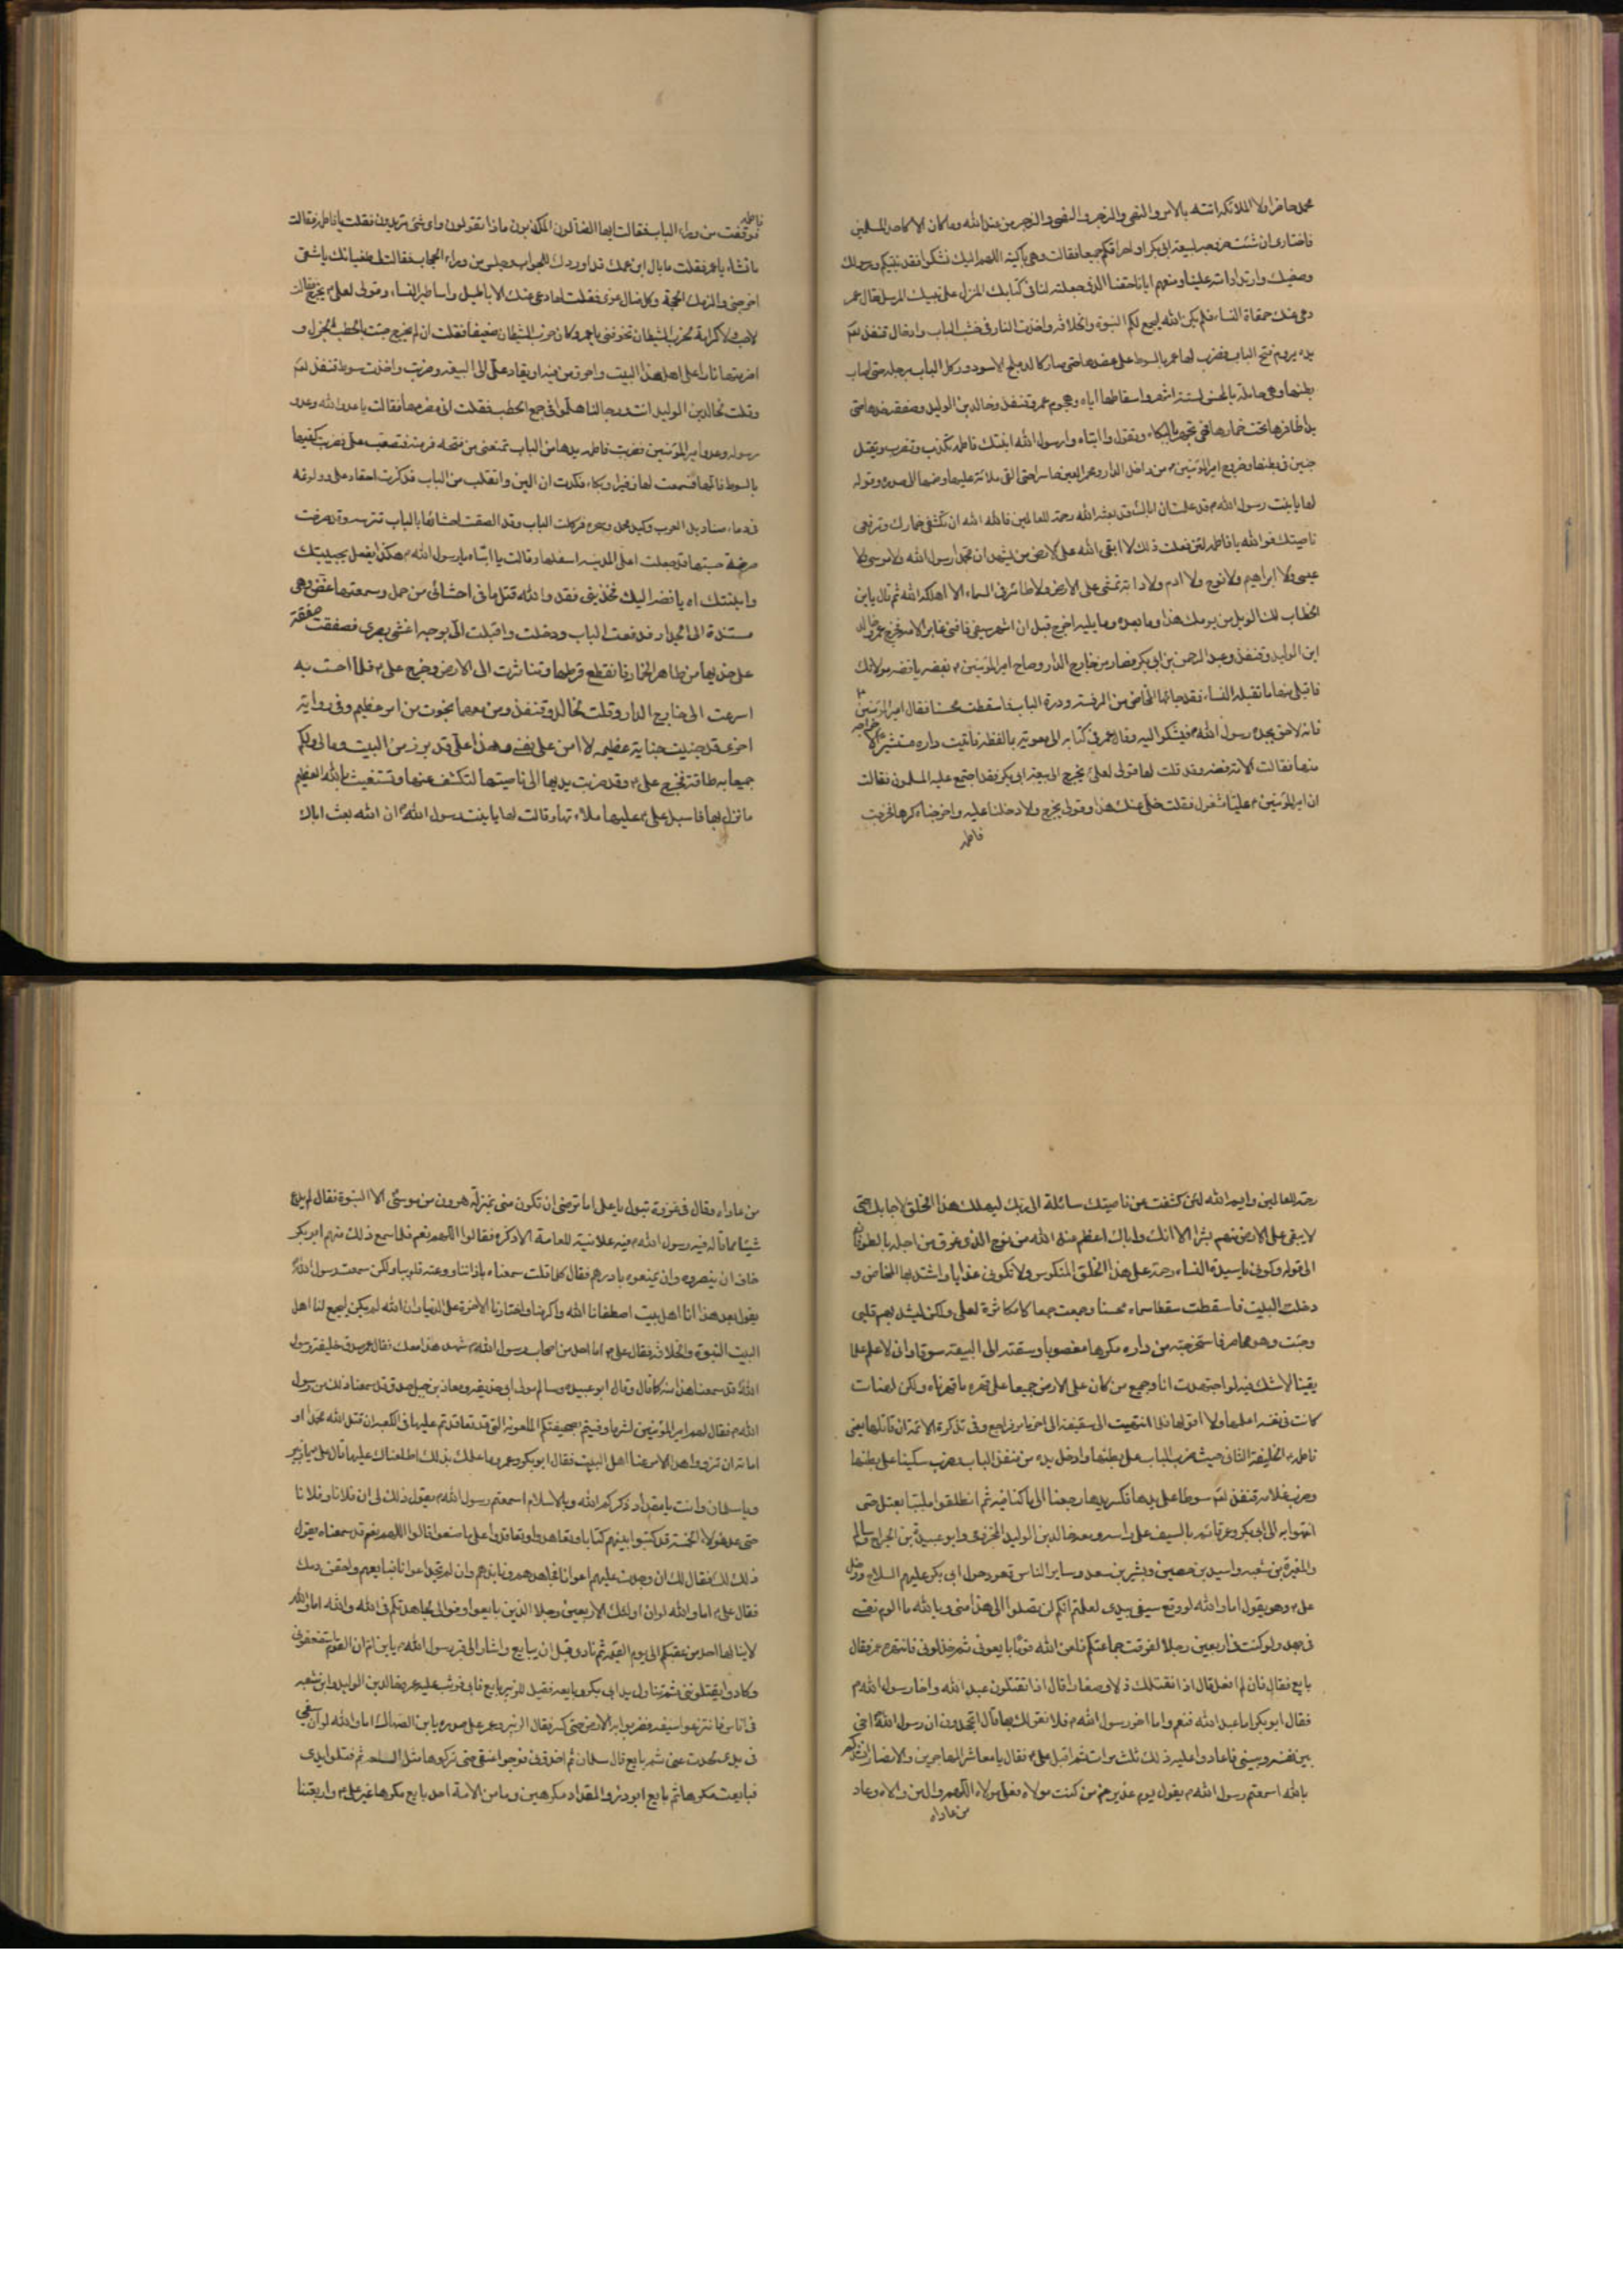 محمد حاضرا ولا الملائكة اتته بالامر والنهى والزجر والنهى والزجر من عند الله وما كان الا كاحد المسلمين
فاختارى ان شئت خروجه لبيعة ابى بكر او احراقكم جميعا فقالت وهى باكية اللهم اليك نشكوا فقد نبيك ورسولك
وصفيك وارتداد امته علينا ومنعهم ايانا حقنا الذى جعلته لنا فى كتابك المنزل على نبيك المرسل فقال عمر
دعى عنك حمقاة النساء فلم يكن الله ليجمع لكم النبوة والخلافة واخذت النار فى خشب الباب وادخال قنفذ لعنه
يده يروم فتح الباب وضرب لها عمر بالسوط على عضدها حتى صار كالدملج الاسود وركل الباب برجله حتى اصاب
بطنها وهى حاملة بالمحسن لستة اشهر واسقاطها اياه وهجوم عمر وقنفذ وخالد بن الوليد وصفقه خدها حتى
بدا ظاهرها تحت خمارها فهى تجهر بالبكاء وتقول وا ابتاه وارسول الله ابنتك فاطمة تكذب وتضرب ويقتل
جنين فى بطنها وخروج امير المؤمنين من داخل الدار ومحمر العين حاسرا حتى القى ملائته عليها وضمها الى صدره وقوله
لها يا بنت رسول الله قد علمت ان اباك قد بعثه الله رحمة للعالمين فالله الله ان تكشفى خمارك وترفعى
ناصيتك فو الله يا فاطمة لئن فعلت ذلك لا ابقى الله على الارض من يشهد ان محمدا رسول الله ولا موسى ولا
عيسى ولا ابراهيم ولا نوح ولا ادم ولا دابة تمشى على الارض ولا طائر فى السماء الا اهلكه الله ثم قال يا بن
الخطاب لك الويل من يومك هذا وما بعده وما يليه اخرج قبل ان اشهر سيفى فافنى غابر الامة فخرج عمر وخالد
ابن الوليد وقنفذ وعبد الرحمن بن ابى بكر فصاروا من خارج الدار وصاح امير المؤمنين بفضه يا فضه مولاتك
فاقبلى منها ما تقبله النساء فقد جائها المخاض من الرفسة وردة الباب فاسقطت محسنا فقال امير المؤمنين
فانه لاحق بجده رسول الله فيشكوا اليه وقال عمر فى كتابه الى معوية بالفظه فاتيت داره مستشيرا لاخراجه
منها فقالت الامة فضه وقد قلت لها قولى لعلى يخرج الى بيعة ابى بكر فقد اجتمع عليه المسلمون فقالت
ان امير المؤمنين عليا مشغول فقلت خلى عنك هذا وقولى يخرج والا دخلنا عليه واخرجناه كرها فخرجت
فاطمه
فاطمه
فوقفت من وراء الباب فقالت ايها الضالون المكذبون ماذا تقولون واى شئ تريدون فقلت يا فاطمة فقالت
ما تشاء يا عمر فقلت ما بال ابن عمك قد اوردك للجواب وجلس من وراء الحجاب فقالت لى طغيانك يا شقى
اخرجنى والزمك الحجة وكل ضال غوى فقلت لها دعى عنك الاباطيل واساطير النساء وقولى لعلى يخرج فقالت
لا حب ولا كرامة بحزب الشيطان تخوفنى يا عمر وكان حزب الشيطان ضعيفا فقلت ان لم يخرج جئت بالحطب الجزل و
اضرمتها نارا على اهل هذا البيت واحرق من فيه او يقاد على الى البيعة وضربت واخذت سوط قنفذ لعنه
وقلت لخالد بن الوليد انت ورجالنا هلموا فى جمع الحطب فقلت انى مضرمها فقالت يا عدو الله وعدو
رسوله وعدو امير المؤمنين فضربت فاطمة يدها من الباب تمنعنى من فتحه فرمته فتصعب على فضربت كفيها
بالسوط فالمها فسمعت لها زفيرا وبكاء فكدت ان الين وانقلب من الباب فذكرت احقاد على وولوغه
فى دماء صناديد العرب وكيد محمد وسحره فركلت الباب وقد الصقت احشائها بالباب تترسه وقد صرخت
صرخة حسبتها قد جعلت اعلى المدينة اسفلها وقالت يا ابتاه يا رسول الله هكذا يفعل بحبيبتك
وابنتك اه يا فضه اليك فخذينى فقد والله قتل ما فى احشائى من حمل وسمعتها تمخض وهى
مستندة الى الجدار فدفعت الباب ودخلت واقبلت الى بوجه اغشى بصرى فصفقت صفقة
على خديها من ظاهر الخمار فانقطع قرطها وتناثرت الى الارض وخرج على فلما احست به
اسرعت الى خارج الدار وقلت لخالد وقنفذ ومن معهما نجوت من امر عظيم وفى رواية
اخرى قد جنيت جناية عظيمة لا امن على نفسى وهذا على قد برز من البيت ومالى ولكم
جميعا به طاقة فخرج على وقد ضربت يديها الى ناصيتها لتكشف عنها وتستغيث بالله العظيم
ما نزل بها فاسبل على عليها ملاءتها وقالت لها يا بنت رسول الله ان الله بعث اباك
رحمة للعالمين وايم الله لئن كشفت عن ناصيتك سائلة الى ربك ليهلك هذا الخلق لاجابك حتى
لا يبقى على الارض منهم بشرا الا انك واباك اعظم عند الله من نوح الذى غرق من اجله بالطوفان
الى قوله وكونى يا سيدة النساء رحمة على هذا الخلق المنكوس ولا تكونى عذابا واشتد بها المخاض و
دخلت البيت فاسقطت سقطا سماه محسنا وجمعت جمعا كما مكاثرة لعلى ولكن ليشد بهم قلبى
وجئت وهو محاصر فاستخرجته من داره مكرها مغصوبا وسقته الى البيعة سوقا وانى لاعلم علما
يقينا لا شك فيه لو اجتهدت انا وجميع من كان على الارض جميعا على قهره ما قهرناه ولكن لهنات
كانت فى نفسه اعلمها ولا اقولها فلما انتهيت الى سقيفة الى اخر ما مر فراجع وفى تذكرة الائمة ان قاتلها يعنى
فاطمه الخليفة الثانى حيث ضرب الباب على بطنها وادخل يده من منفذ الباب وضرب سكينا على بطنها
وضرب غلامه قنفذ لعنه سوطا على يدها فكسر يدها رجعنا الى ما كنا فيه ثم انطلقوا ملببا يعتل حتى
انتهوا به الى ابى بكر وعمر قائم بالسيف على راسه ومعه خالد بن الوليد المخزومى وابو عبيدة بن الجراح وسالم
والمغيرة بن شعبه واسيد بن حصين وبشير بن سعد وساير الناس قعود حول ابى بكر عليهم السلاح ودخل
على وهو يقول اما والله لو وقع سيفى بيدى لعلمتم انكم لن تصلوا الى هذا منى وبالله ما الوم نفسى
فى جهد ولو كنت فى اربعين رجلا لفرقت جماعتكم فلعن الله قوما بايعونى ثم خذلونى فانتهره عمر فقال
بايع فقال فان لم افعل قال اذا نقتلك ذلا وصغارا قال اذا تقتلون عبد الله واخا رسول الله
فقال ابو بكر اما عبد الله فنعم واما اخو رسول الله فلا نعرفك بها قال اتجحدون ان رسول الله اخى
بين نفسه وبينى فاعادوا عليه ذلك ثلث مرات ثم اقبل على فقال يا معاشر المهاجرين والانصار انشدكم
بالله اسمعتم رسول الله يقول يوم غدير خم من كنت مولاه فعلى مولاه اللهم وال من والاه وعاد
من عاداه
من عاداه وقال فى غزوة تبوك يا على اما ترضى ان تكون منى بمنزلة هرون من موسى الا النبوة فقال لم يدع
شيئا مما قاله فيه رسول الله فيه علانية للعامة الا ذكره فقالوا اللهم نعم فلما سمع ذلك منهم ابو بكر
خاف ان ينصروه وان يمنعوه بادرهم فقال كلما قلت سمعناه باذاننا ووعته قلوبنا ولكن سمعت رسول الله
يقول بعد هذا انا اهل بيت اصطفانا الله واكرمنا واختار لنا الاخرة على الدنيا وان الله لم يكن ليجمع لنا اهل
البيت النبوة والخلافة فقال على اما احد من اصحاب رسول الله شهد هذا معك فقال عمر صدق خليفة رسول
الله قد سمعنا هذا منه كما قال وقال ابو عبيده وسالم مولى ابى حذيفه ومعاذ بن جبل صدق قد سمعنا ذلك من رسول
الله فقال لهم امير المؤمنين لشد ما وفيتم بصحيفتكم الملعونة التى قد تعاقدتم عليها فى الكعبة ان قتل الله محمدا او
اماته ان تزووا هذا الامر عنا اهل البيت فقال ابو بكر وعمر وما علمك بذلك اطلعناك عليها قال على يا زبير
ويا سلمان وانت يا مقداد ذكركم الله وبالاسلام اسمعتم رسول الله يقول ذلك لى ان فلانا وفلانا
حتى عد هؤلاء الخمسة قد كتبوا بينهم كتابا وتعاهدوا وتعاقدوا على ما صنعوا قالوا اللهم نعم قد سمعناه يقول
ذلك لك فقال لك ان وجدت عليهم اعوانا فجاهدهم ونابذهم وان لم تجد اعوانا فبايعهم واحقن دمك
فقال على اما والله لو ان اولئك الاربعين رجلا الذين بايعوا وفوا لى لجاهدتكم فى الله والله اما والله
لا ينالها احد من عقبكم الى يوم القيمة ثم نادى قبل ان يبايع واشار الى قبر رسول الله يا بن ام ان القوم استضعفونى
وكادوا يقتلوننى ثم تناول يد ابى بكر وبايعه فقيل للزبير بايع فابى فوثب عليه عمر وخالد بن الوليد وابن شعبه
فى اناس فانتزعوا سيفه فضربوا به الارض حتى كسر فقال الزبير وعمر على صدره يا بن الصهاك اما والله لو ان سيفى
فى يدى لحدت عنى ثم بايع قال سلمان ثم اخذونى فوجوا عنقى حتى تركوها مثل السلعة ثم فتلوا يدى
فبايعت مكرها ثم بايع ابوذر والمقداد مكرهين وما من الامة احد بايع مكرها غير على واربعتنا